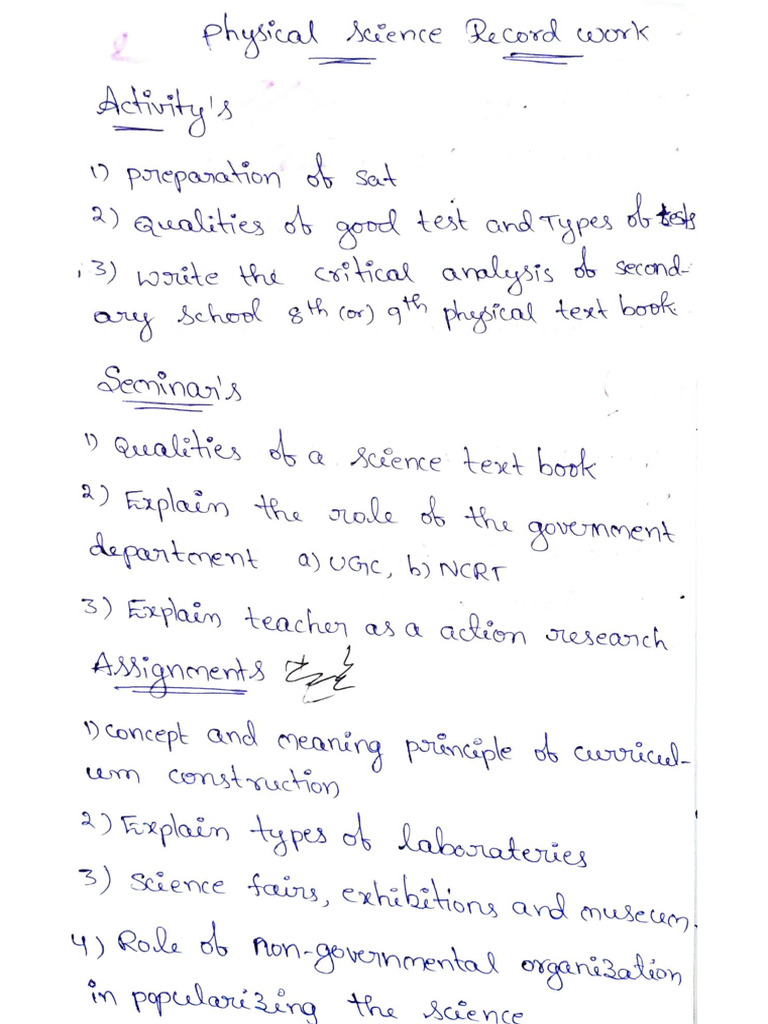 Physical Science Record work
Activity's
1) preparation of sat
2) Qualities of good test and Types of tests
3) write the critical analysis of second-
ary school 8th (or) 9th physical text book
Seminar's
1) Qualities of a science text book
2) Explain the role of the government
department a) UGC, b) NCRT
3) Explain teacher as a action research
Assignments
1) concept and meaning principle of curricul-
um construction
2) Explain types of laborateries
3) science fairs, exhibitions and museum.
4) Role of non-governmental organization
in popularizing the science